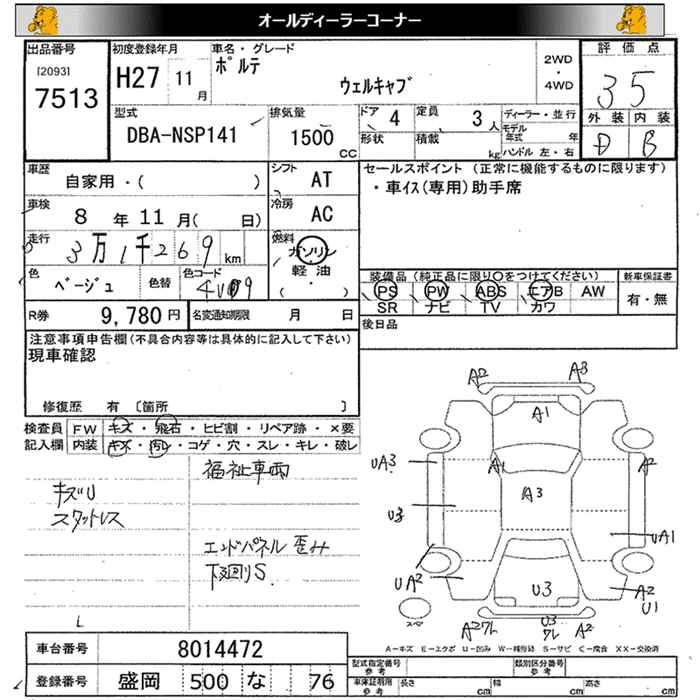 オールディーラーコーナー
出品番号
[2093]
7513
初度登録年月
H27 11月
車名・グレード
ポルテ
ウェルキャブ
2WD
・
4WD
評価点
35
外装 内装
D B
型式
DBA-NSP141
排気量
1500 CC
ドア 4
形状
定員 3人
積載 kg
ディーラー・並行
モデル年式 年
ハンドル 左・右
車歴
自家用・( )
シフト AT
車検
8年11月( 日)
冷房 AC
走行
3万1千269km
燃料
ガソリン
軽・油
( ・ )
色
ベージュ
色替
色コード
R券
9,780円
名変通知期限 月 日
セールスポイント (正常に機能するものに限ります)
・車イス(専用)助手席
装備品 (純正品に限り○をつけてください)
PS PW ABS エアB AW
SR ナビ TV カワ
新車保証書
有・無
後日品
注意事項申告欄(不具合内容等は具体的に記入して下さい)
現車確認
修復歴 有 〔箇所 〕
検査員 FW キズ・飛石・ヒビ割・リペア跡・×要
記入欄 内装 キズ・汚レ・コゲ・穴・スレ・キレ・破レ
福祉車両
キズU
スタットレス
エンドパネル歪み
下廻りS.
L
A2 A3
A1
UA3 A1 A2
A3
U3
UA1
UA2
U3
A2
U1
スペ
A2ワレ U3ワレ A2
A－キズ E－エクボ U－凹み W－補修跡 S－サビ C－腐食 XX－交換済
車台番号 8014472
登録番号 盛岡 500 な 76
型式指定番号 参考
類別区分番号 参考
車庫証明用 参考
長さ cm
幅 cm
高さ cm